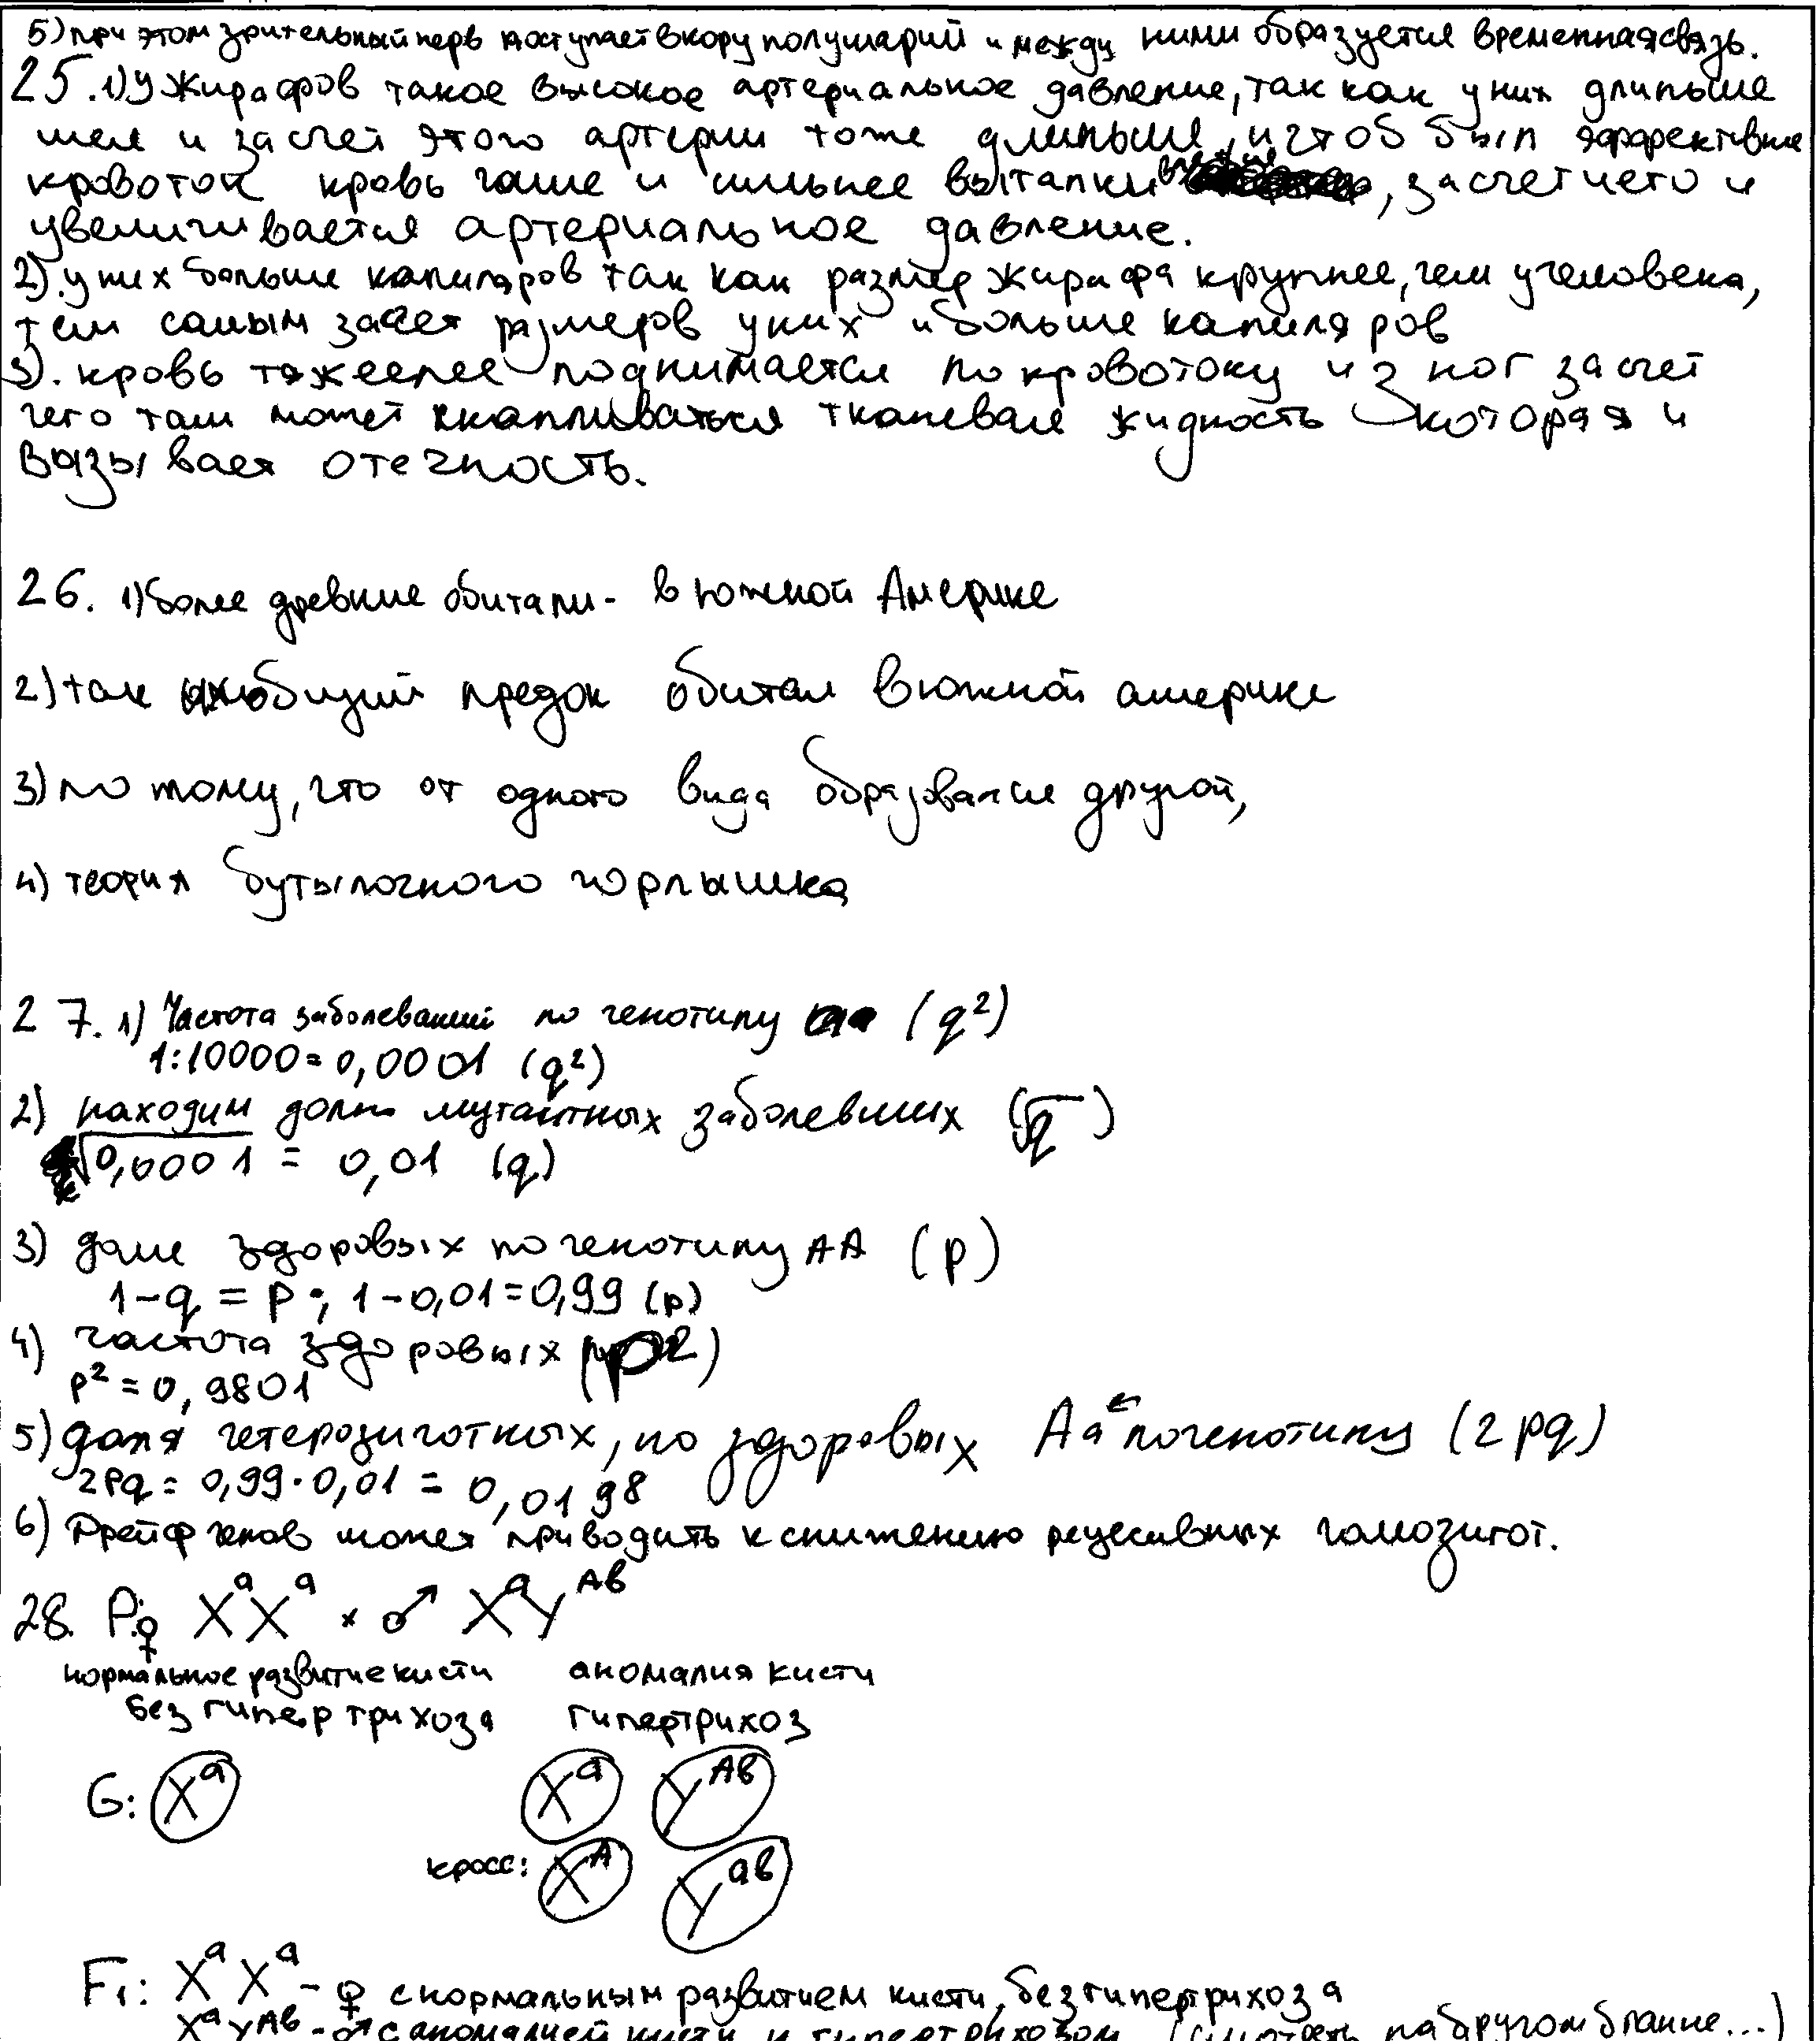 5) при этом зрительный нерв поступает в кору полушарий и между ними образуется временная связь.
25. 1) У жирафов такое высокое артериальное давление, так как у них длиньше
шея и за счет этого артерии тоже длиньше, и чтоб был эффективне
кровоток кровь чаще и сильнее выталкив , за счет чего и
увеличивается артериальное давление.
2). у них больше капиляров так как размер жирафа крупнее, чем у человека,
тем самым за счет размеров у них и больше капиляров
3). кровь тяжеелее поднимается по кровотоку из ног за счет
чего там может скапливаться тканевая жидкость которая и
вызывает отечность.
26. 1) более древние обитали - в южной Америке
2) там общий предок обитал в южной америке
3) по тому, что от одного вида образовался другой,
4) теория бутылочного горлышка
27. 1) Частота заболеваний по генотипу аа (q²)
1:10000 = 0,0001 (q²)
2) находим долю мутантных заболевших (√q)
√0,0001 = 0,01 (q)
3) доля здоровых по генотипу АА (p)
1-q = p; 1-0,01=0,99 (p)
4) частота здоровых (p2)
p² = 0,9801
5) доля гетерозиготных, но здоровых Аа ← по генотипу (2pq)
2pq = 0,99·0,01 = 0,0198
6) Дрейф генов может приводить к снижению рецесивных гомозигот.
28. P: ♀ XᵃXᵃ × ♂ XᵃYᴬᵇ
нормальное развитие кисти аномалия кисти
без гипертрихоза гипертрихоз
G: Xᵃ Xᵃ Yᴬᵇ
кросс: Xᴬ Yᵃᵇ
F₁: XᵃXᵃ - ♀ с нормальным развитием кисти, без гипертрихоза
XᵃYᴬᵇ - ♂ с аномалией кисти и гипертрихозом (смотреть на другом бланке...)